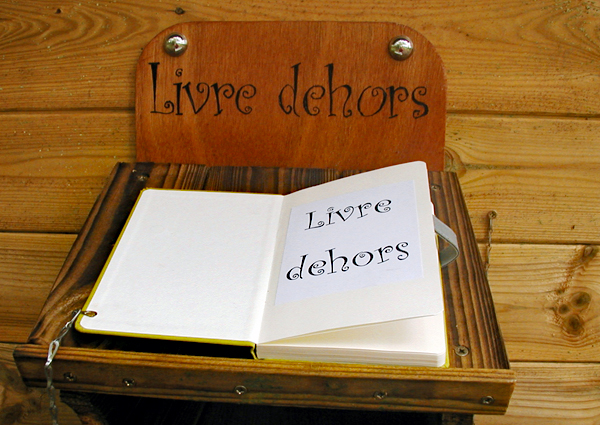 Livre dehors
Livre
dehors